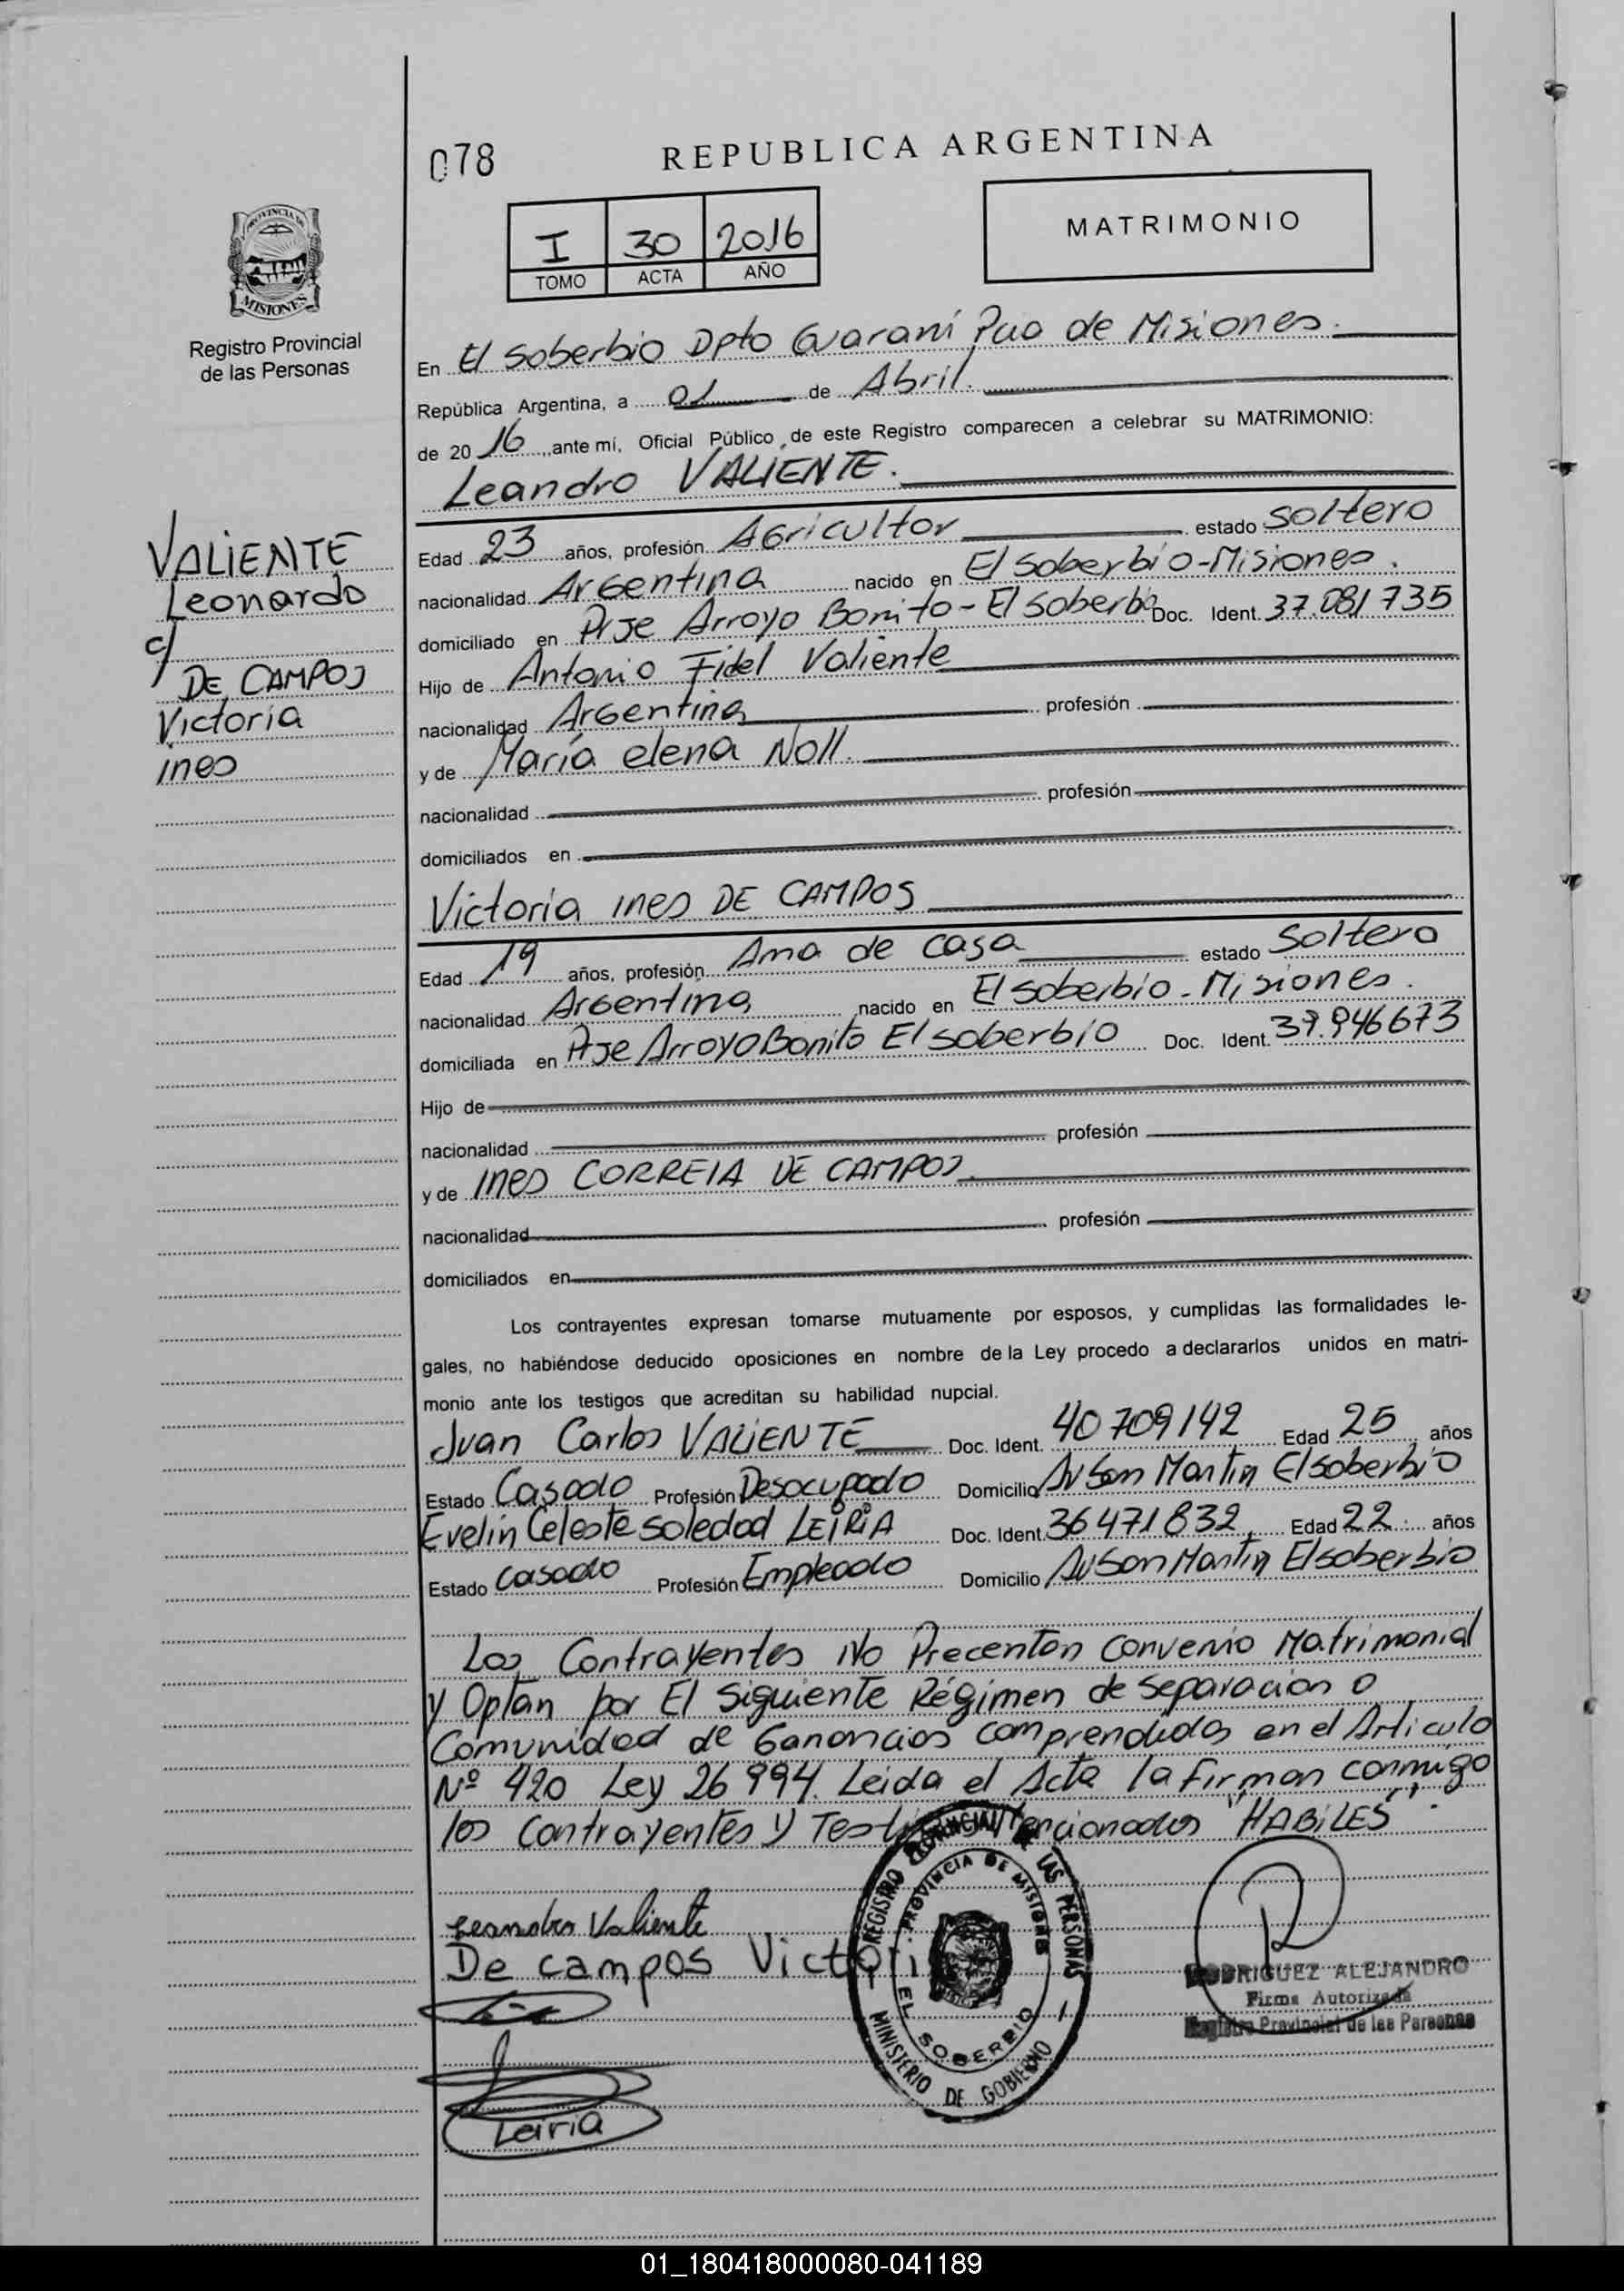 078
REPUBLICA ARGENTINA
I 30 2016
TOMO ACTA AÑO
MATRIMONIO
PROVINCIA DE
MISIONES
Registro Provincial
de las Personas
VALIENTE
Leonardo
c/
DE CAMPOS
Victoria
ines
En El Soberbio Dpto Guaraní Pcia de Misiones.
República Argentina, a 01 de Abril.
de 2016, ante mí, Oficial Público de este Registro comparecen a celebrar su MATRIMONIO:
Leandro VALIENTE.
Edad 23 años, profesión Agricultor estado Soltero
nacionalidad Argentina nacido en El Soberbio-Misiones.
domiciliado en Pje Arroyo Bonito - El Soberbio Doc. Ident. 37.081735
Hijo de Antonio Fidel Valiente
nacionalidad Argentina profesión
y de María elena Noll.
nacionalidad profesión
domiciliados en
Victoria ines DE CAMPOS
Edad 19 años, profesión Ama de casa estado Soltera
nacionalidad Argentina nacido en El Soberbio - Misiones.
domiciliada en Pje Arroyo Bonito El Soberbio Doc. Ident. 39.946673
Hijo de
nacionalidad profesión
y de ines CORREIA DE CAMPOS.
nacionalidad profesión
domiciliados en
Los contrayentes expresan tomarse mutuamente por esposos, y cumplidas las formalidades le-
gales, no habiéndose deducido oposiciones en nombre de la Ley procedo a declararlos unidos en matri-
monio ante los testigos que acreditan su habilidad nupcial.
Juan Carlos VALIENTE Doc. Ident. 40709142 Edad 25 años
Estado Casado Profesión Desocupado Domicilio Av San Martin El soberbio
Evelin Celeste Soledad LEIRIA Doc. Ident. 36471832 Edad 22 años
Estado Casado Profesión Empleado Domicilio Av San Martin El soberbio
Los Contrayentes No Precentan convenio Matrimonial
y Optan por El Siguiente Régimen de separacion o
Comunidad de Ganancias comprendidas en el Articulo
Nº 420 Ley 26994. Leida el Acta la firman conmigo
los Contrayentes y Testigos Mencionados "HABILES".
Leandro Valiente
De campos Victoria
Leiria
REGISTRO PROVINCIAL DE LAS PERSONAS
MINISTERIO DE GOBIERNO
PROVINCIA DE MISIONES
EL SOBERBIO
RODRIGUEZ ALEJANDRO
Firma Autorizada
Registro Provincial de las Personas
01_180418000080-041189